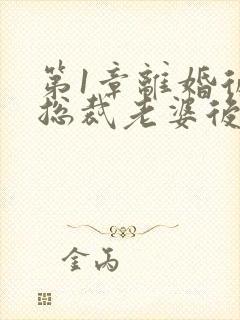 第1章離婚後
総裁老婆後
金丙